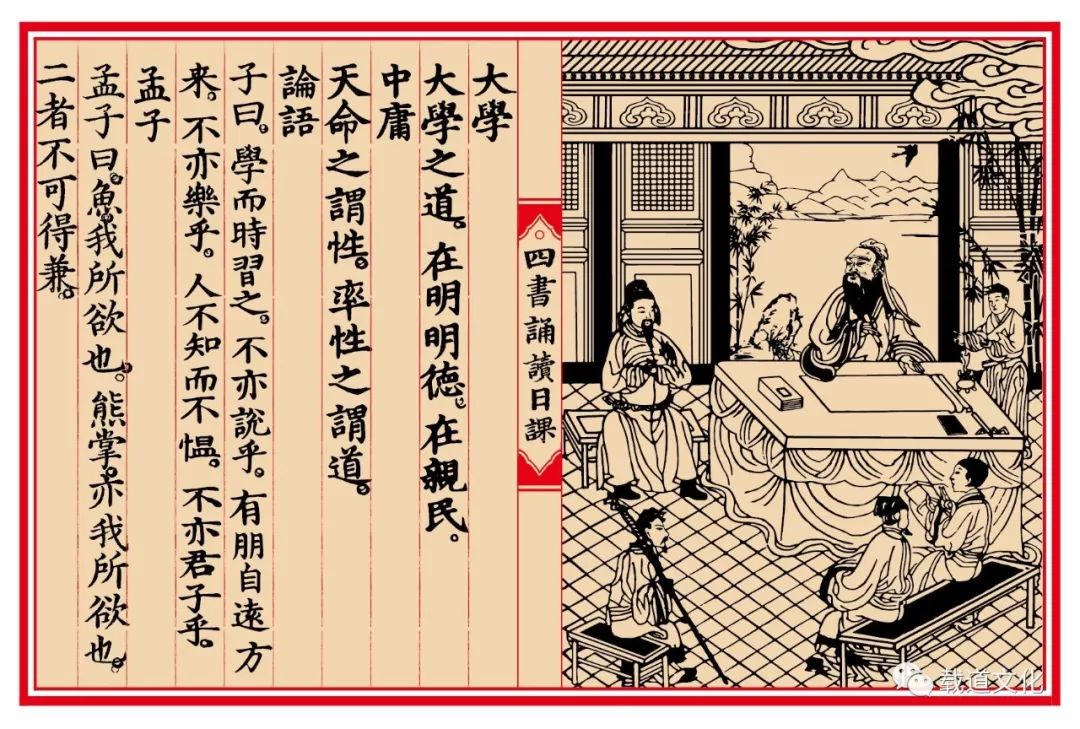 四書誦讀日課
大學
大學之道。在明明德。在親民。
中庸
天命之謂性。率性之謂道。
論語
子曰。學而時習之。不亦說乎。有朋自遠方
來。不亦樂乎。人不知而不愠。不亦君子乎。
孟子
孟子曰。魚。我所欲也。熊掌。亦我所欲也。
二者不可得兼。
载道文化